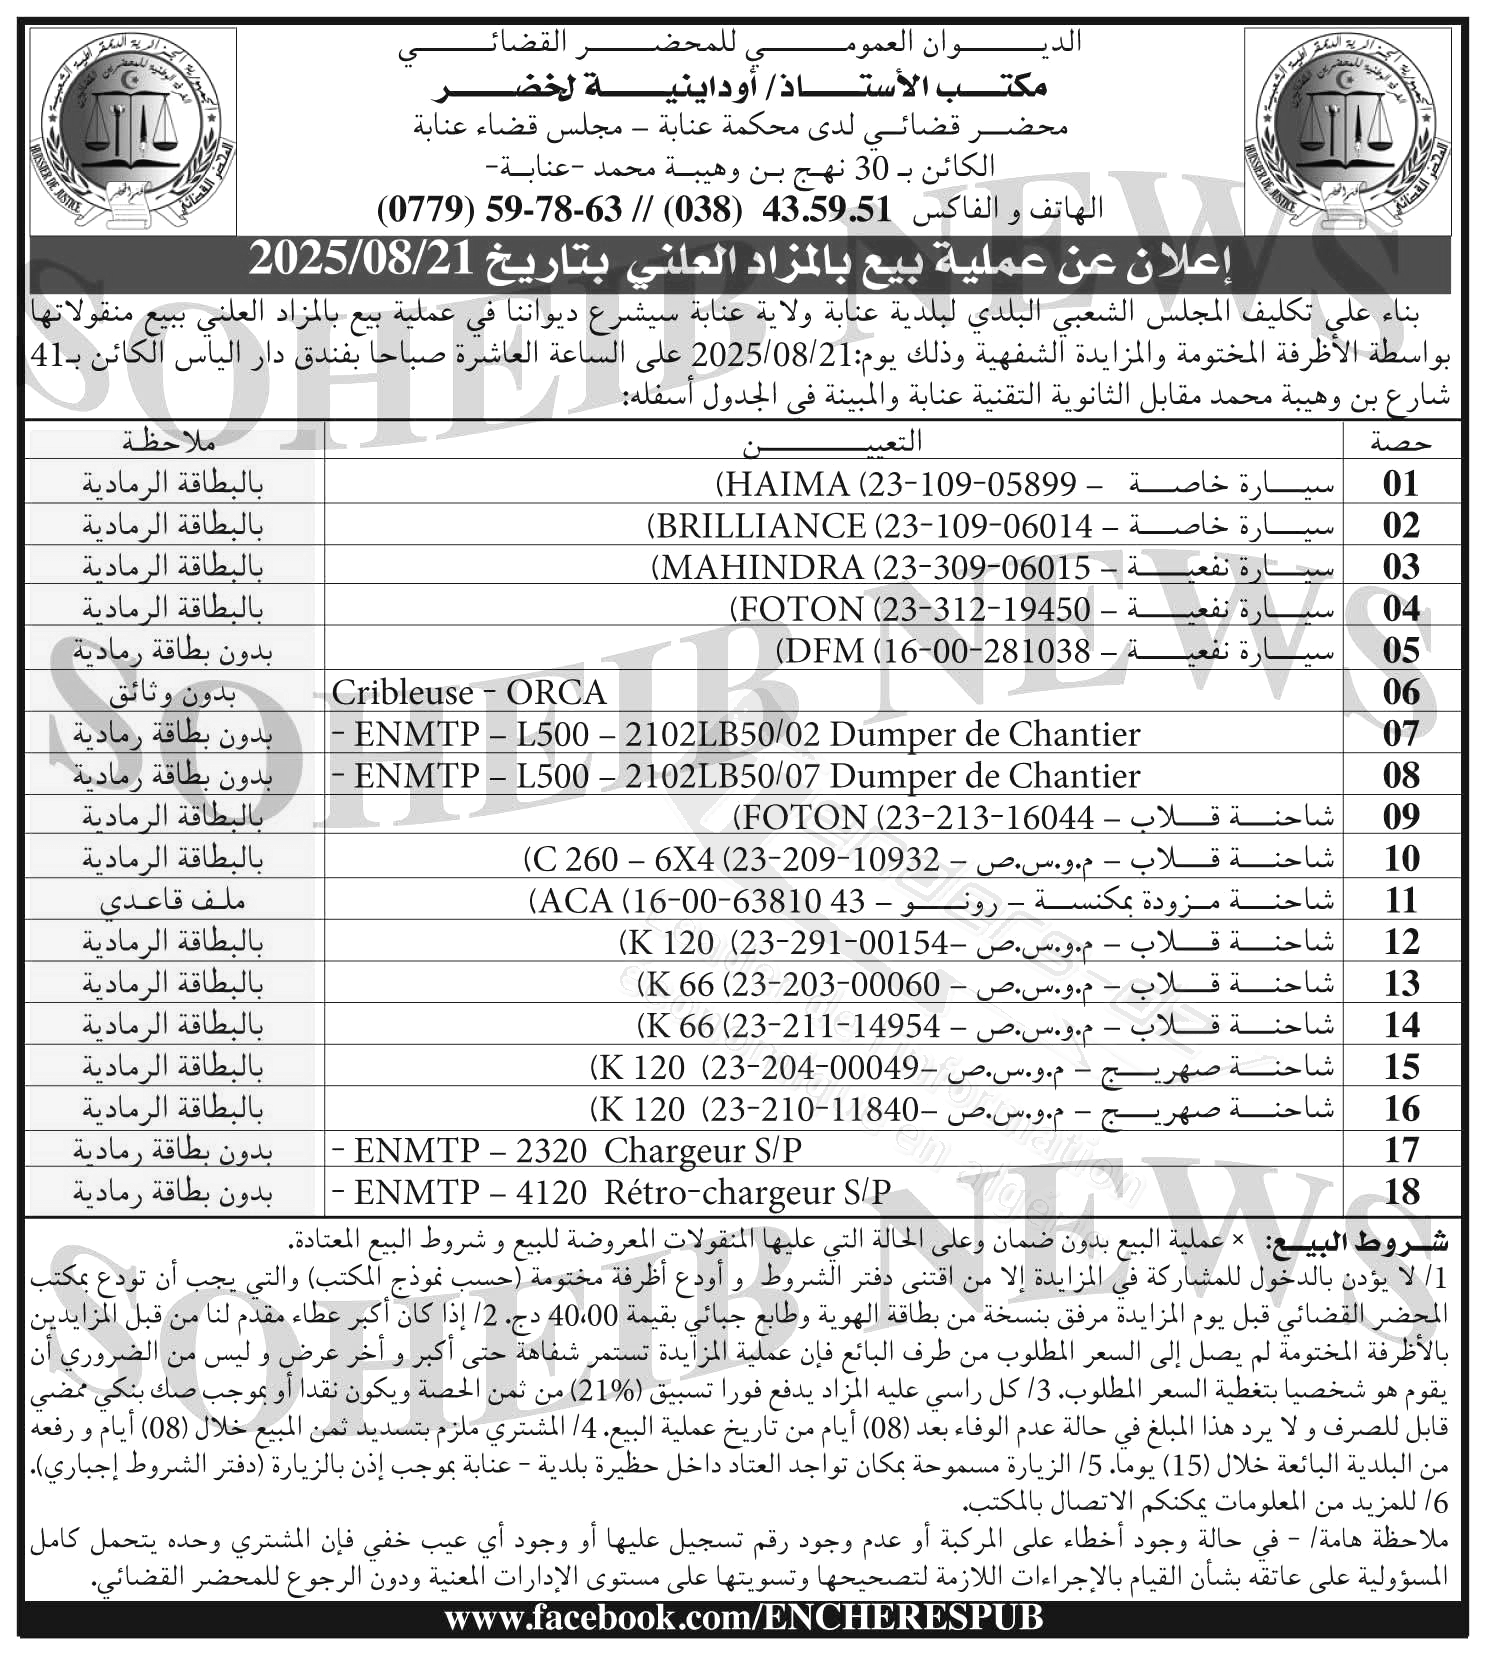 الديوان العمومي للمحضر القضائي
مكتب الأستاذ/ أوداينية لخضر
محضر قضائي لدى محكمة عنابة – مجلس قضاء عنابة
الكائن بـ 30 نهج بن وهيبة محمد -عنابة-
الهاتف و الفاكس 43.59.51 (038) // 59-78-63 (0779)
إعلان عن عملية بيع بالمزاد العلني بتاريخ 2025/08/21
بناء على تكليف المجلس الشعبي البلدي لبلدية عنابة ولاية عنابة سيشرع ديواننا في عملية بيع بالمزاد العلني ببيع منقولاتها
بواسطة الأظرفة المختومة والمزايدة الشفهية وذلك يوم:2025/08/21 على الساعة العاشرة صباحا بفندق دار الياس الكائن بـ41
شارع بن وهيبة محمد مقابل الثانوية التقنية عنابة والمبينة في الجدول أسفله:
حصة التعييــن ملاحظة
01 سيارة خاصة – HAIMA (23-109-05899) بالبطاقة الرمادية
02 سيارة خاصة – BRILLIANCE (23-109-06014) بالبطاقة الرمادية
03 سيارة نفعية – MAHINDRA (23-309-06015) بالبطاقة الرمادية
04 سيارة نفعية – FOTON (23-312-19450) بالبطاقة الرمادية
05 سيارة نفعية – DFM (16-00-281038) بدون بطاقة رمادية
06 Cribleuse - ORCA بدون وثائق
07 - ENMTP – L500 – 2102LB50/02 Dumper de Chantier بدون بطاقة رمادية
08 - ENMTP – L500 – 2102LB50/07 Dumper de Chantier بدون بطاقة رمادية
09 شاحنة قلاب – FOTON (23-213-16044) بالبطاقة الرمادية
10 شاحنة قلاب – م.و.س.ص – C 260 – 6X4 (23-209-10932) بالبطاقة الرمادية
11 شاحنة مزودة بمكنسة – رونو – ACA (16-00-63810 43) ملف قاعدي
12 شاحنة قلاب – م.و.س.ص – K 120 (23-291-00154) بالبطاقة الرمادية
13 شاحنة قلاب – م.و.س.ص – K 66 (23-203-00060) بالبطاقة الرمادية
14 شاحنة قلاب – م.و.س.ص – K 66 (23-211-14954) بالبطاقة الرمادية
15 شاحنة صهريج – م.و.س.ص – K 120 (23-204-00049) بالبطاقة الرمادية
16 شاحنة صهريج – م.و.س.ص – K 120 (23-210-11840) بالبطاقة الرمادية
17 - ENMTP – 2320 Chargeur S/P بدون بطاقة رمادية
18 - ENMTP – 4120 Rétro-chargeur S/P بدون بطاقة رمادية
شروط البيع: × عملية البيع بدون ضمان وعلى الحالة التي عليها المنقولات المعروضة للبيع و شروط البيع المعتادة.
1/ لا يؤدن بالدخول للمشاركة في المزايدة إلا من اقتنى دفتر الشروط و أودع أظرفة مختومة (حسب نموذج المكتب) والتي يجب أن تودع بمكتب
المحضر القضائي قبل يوم المزايدة مرفق بنسخة من بطاقة الهوية وطابع جبائي بقيمة 40،00 دج. 2/ إذا كان أكبر عطاء مقدم لنا من قبل المزايدين
بالأظرفة المختومة لم يصل إلى السعر المطلوب من طرف البائع فإن عملية المزايدة تستمر شفاهة حتى أكبر و أخر عرض و ليس من الضروري أن
يقوم هو شخصيا بتغطية السعر المطلوب. 3/ كل راسي عليه المزاد يدفع فورا تسبيق (21%) من ثمن الحصة ويكون نقدا أو بموجب صك بنكي ممضي
قابل للصرف و لا يرد هذا المبلغ في حالة عدم الوفاء بعد (08) أيام من تاريخ عملية البيع. 4/ المشتري ملزم بتسديد ثمن المبيع خلال (08) أيام و رفعه
من البلدية البائعة خلال (15) يوما. 5/ الزيارة مسموحة بمكان تواجد العتاد داخل حظيرة بلدية - عنابة بموجب إذن بالزيارة (دفتر الشروط إجباري).
6/ للمزيد من المعلومات يمكنكم الاتصال بالمكتب.
ملاحظة هامة/ - في حالة وجود أخطاء على المركبة أو عدم وجود رقم تسجيل عليها أو وجود أي عيب خفي فإن المشتري وحده يتحمل كامل
المسؤولية على عاتقه بشأن القيام بالإجراءات اللازمة لتصحيحها وتسويتها على مستوى الإدارات المعنية ودون الرجوع للمحضر القضائي.
www.facebook.com/ENCHERESPUB
SOHEIB NEWS
SOHEIB NEWS
SOHEIB NEWS
HUISSIER DE JUSTICE
المحضر القضائي
HUISSIER DE JUSTICE
المحضر القضائي